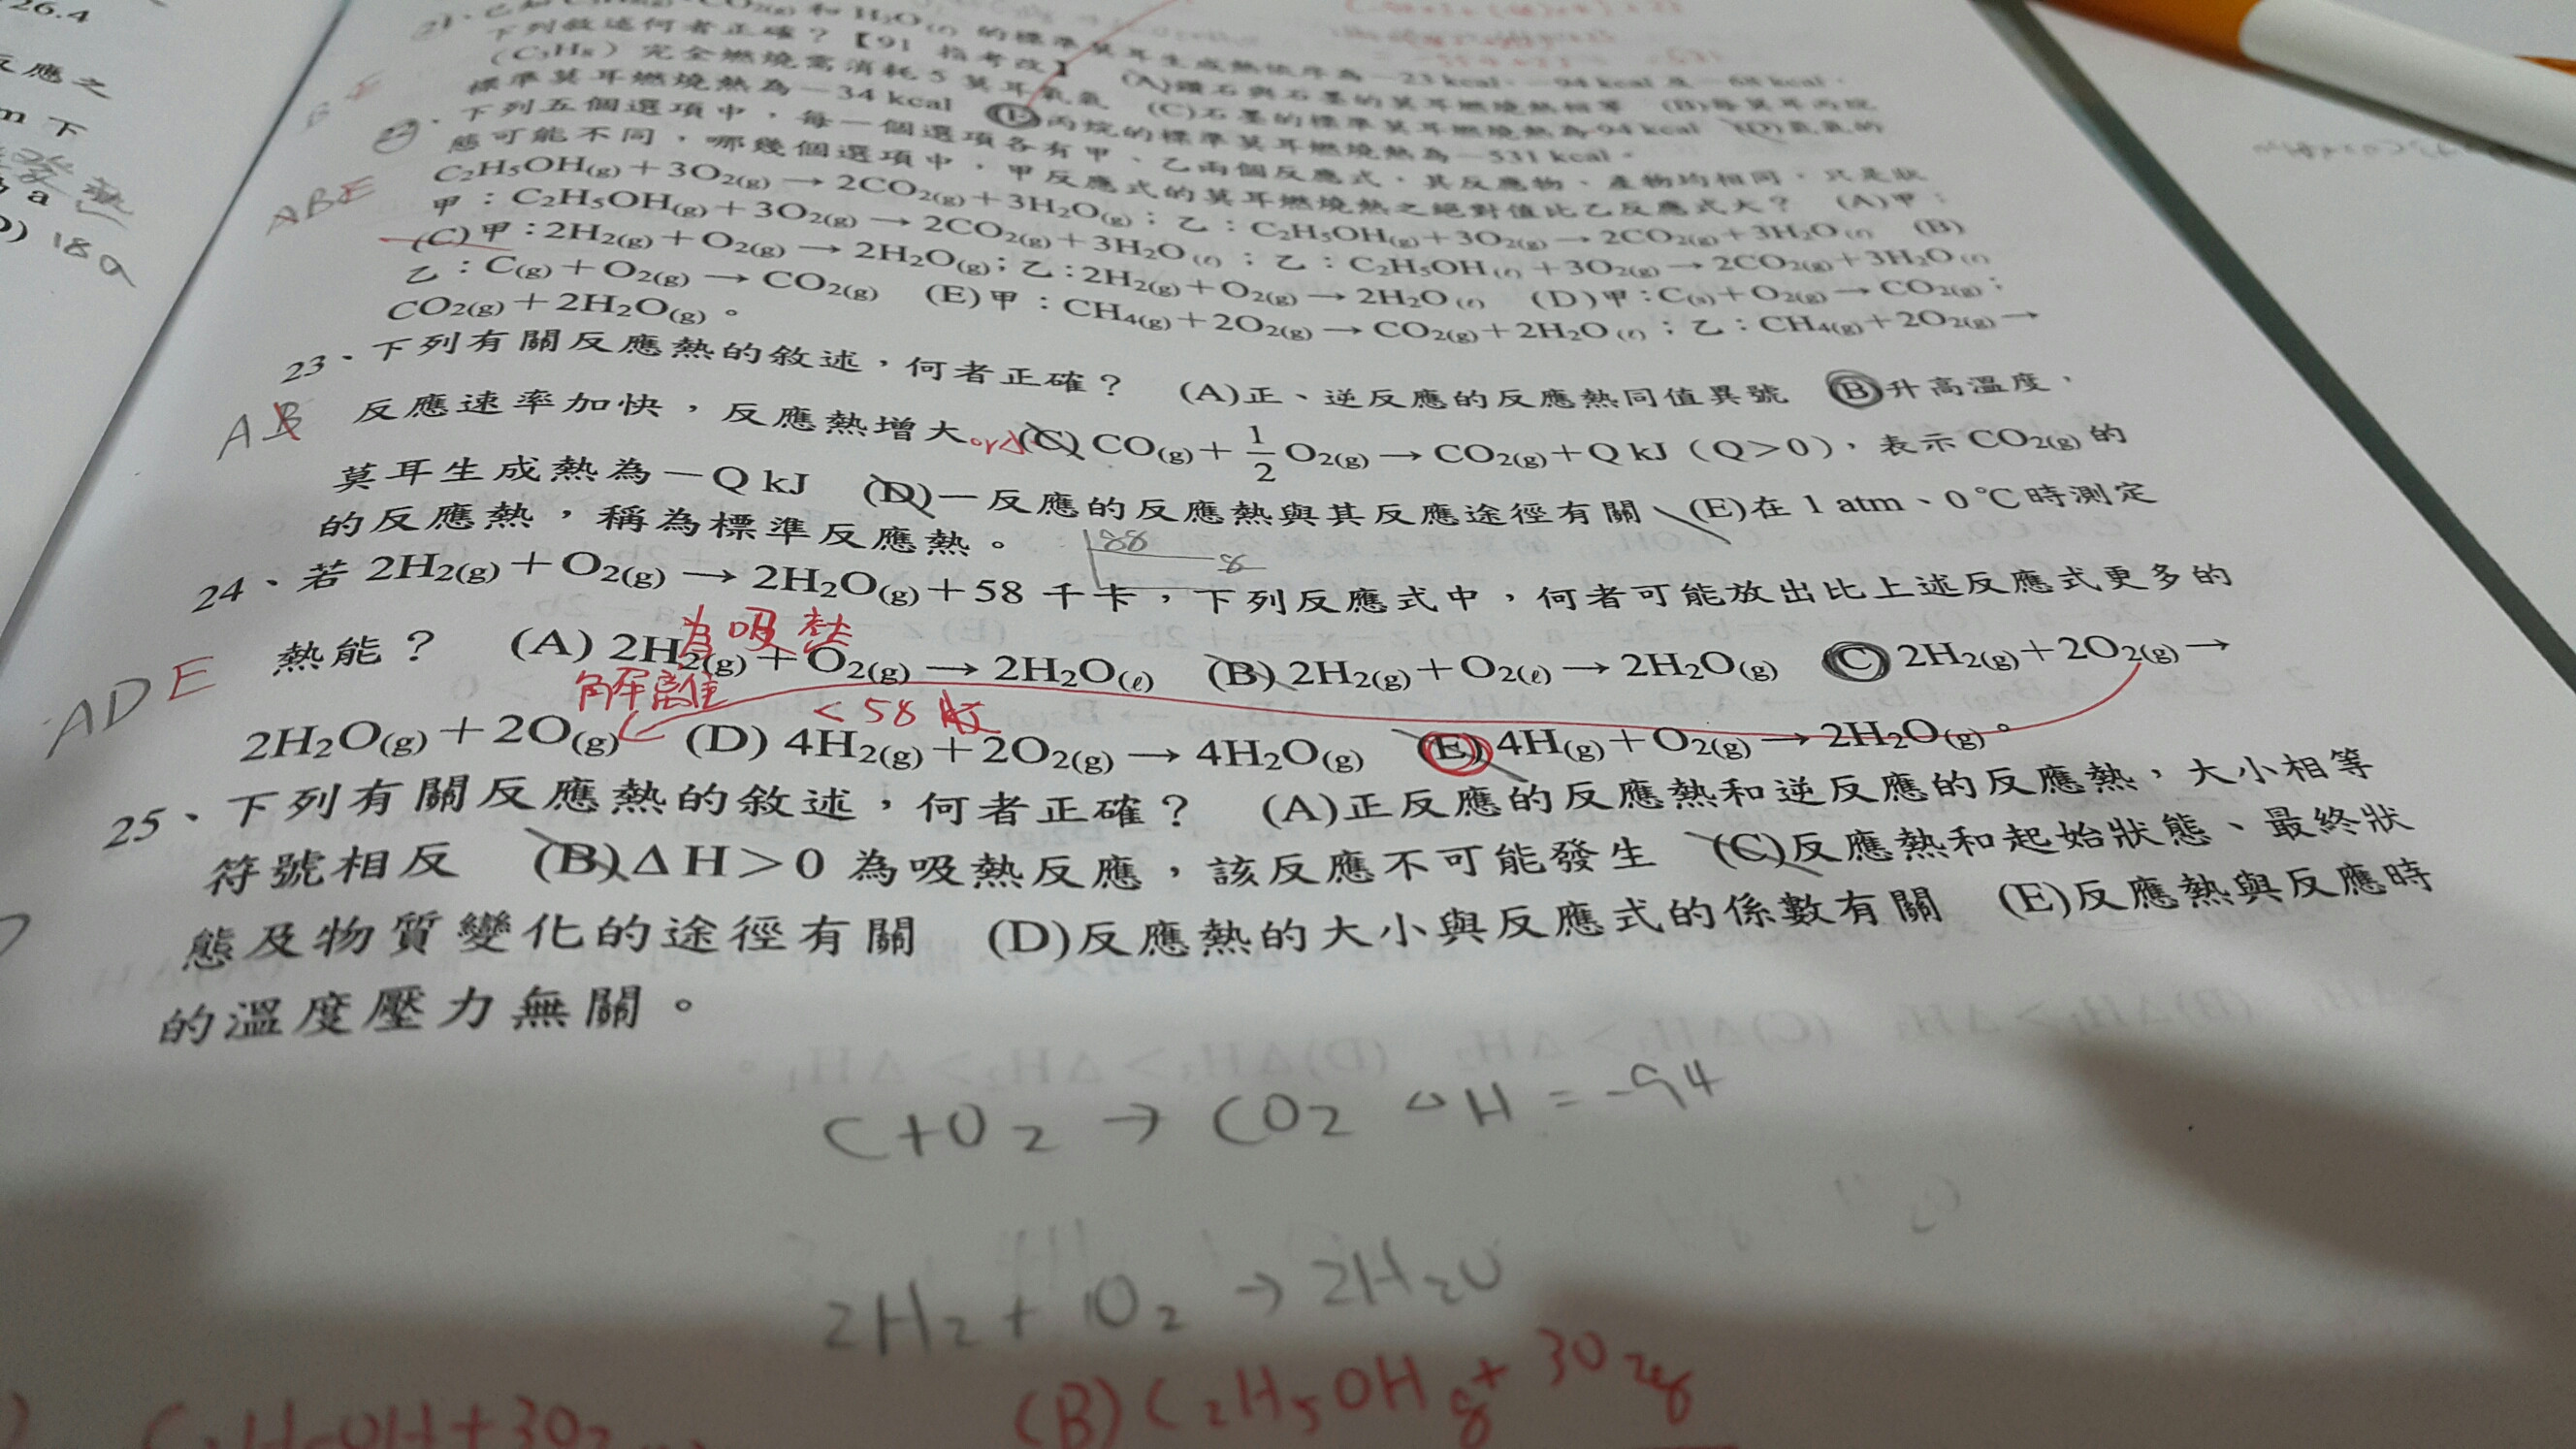 26.4
反應之
m 下
) 189
21、已知
和 H2O(ℓ) 的標準莫耳生成熱依序為 −23 kcal、−94 kcal 及 −68 kcal。
下列敘述何者正確？【91 指考改】 (A)鑽石與石墨的莫耳燃燒熱相等 (B)每莫耳丙烷
(C3H8) 完全燃燒需消耗 5 莫耳氧氣 (C)石墨的標準莫耳燃燒熱為 94 kcal (D)氫氣的
標準莫耳燃燒熱為 −34 kcal (E)丙烷的標準莫耳燃燒熱為 −531 kcal。
22、下列五個選項中，每一個選項各有甲、乙兩個反應式，其反應物、產物均相同，只是狀
態可能不同，哪幾個選項中，甲反應式的莫耳燃燒熱之絕對值比乙反應式大？ (A)甲：
ABE
C2H5OH(g)+3O2(g)→2CO2(g)+3H2O(g)；乙：C2H5OH(g)+3O2(g)→2CO2(g)+3H2O(ℓ) (B)
甲：C2H5OH(g)+3O2(g)→2CO2(g)+3H2O(ℓ)；乙：C2H5OH(ℓ)+3O2(g)→2CO2(g)+3H2O(ℓ)
(C)甲：2H2(g)+O2(g)→2H2O(g)；乙：2H2(g)+O2(g)→2H2O(ℓ) (D)甲：C(s)+O2(g)→CO2(g)；
乙：C(g)+O2(g)→CO2(g) (E)甲：CH4(g)+2O2(g)→CO2(g)+2H2O(ℓ)；乙：CH4(g)+2O2(g)→
CO2(g)+2H2O(g)。
23、下列有關反應熱的敘述，何者正確？ (A)正、逆反應的反應熱同值異號 (B)升高溫度，
AB 反應速率加快，反應熱增大 (C) CO(g)+1/2 O2(g)→CO2(g)+Q kJ（Q>0），表示 CO2(g)的
莫耳生成熱為−Q kJ (D)一反應的反應熱與其反應途徑有關 (E)在 1 atm、0 ℃時測定
的反應熱，稱為標準反應熱。
88
8
24、若 2H2(g)+O2(g)→2H2O(g)+58 千卡，下列反應式中，何者可能放出比上述反應式更多的
為吸熱
熱能？ (A) 2H2(g)+O2(g)→2H2O(ℓ) (B) 2H2(g)+O2(ℓ)→2H2O(g) (C) 2H2(g)+2O2(g)→
ADE
解離
<58
2H2O(g)+2O(g) (D) 4H2(g)+2O2(g)→4H2O(g) (E) 4H(g)+O2(g)→2H2O(g)。
25、下列有關反應熱的敘述，何者正確？ (A)正反應的反應熱和逆反應的反應熱，大小相等
符號相反 (B)ΔH>0 為吸熱反應，該反應不可能發生 (C)反應熱和起始狀態、最終狀
態及物質變化的途徑有關 (D)反應熱的大小與反應式的係數有關 (E)反應熱與反應時
的溫度壓力無關。
C+O2 → CO2 ΔH=-94
2H2 + O2 → 2H2O
(B) C2H5OHg + 3O2g